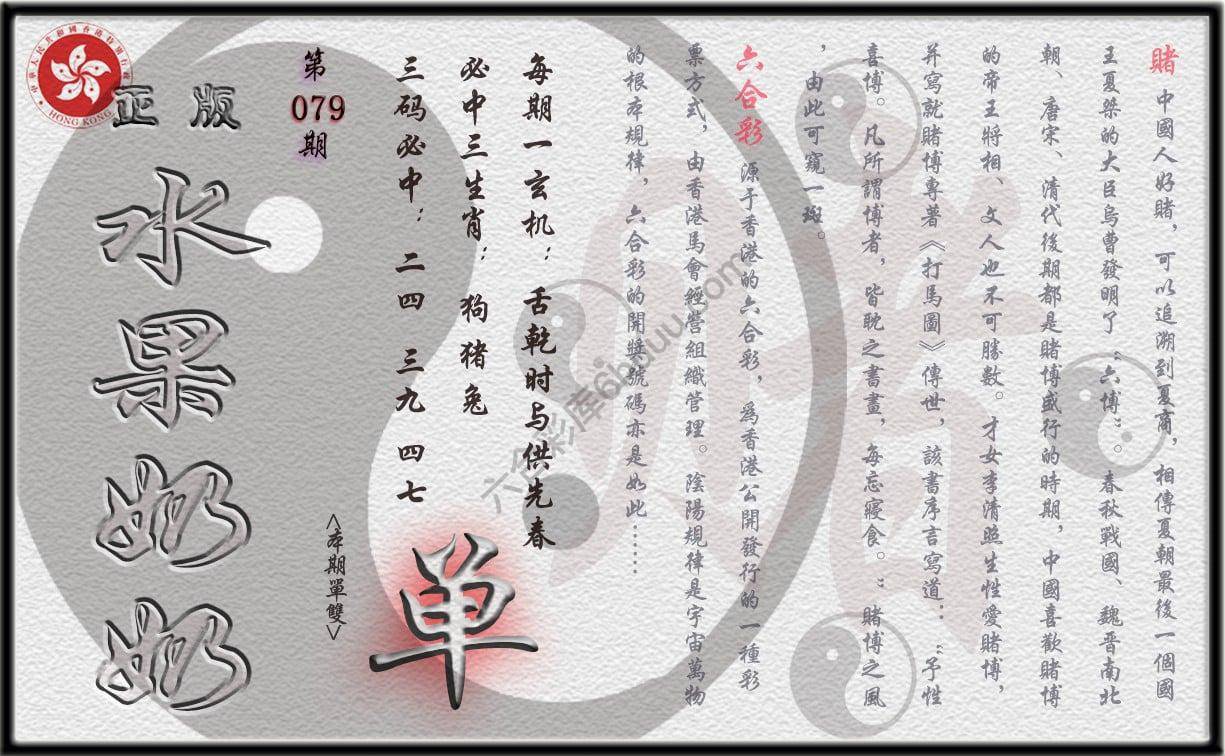 賭 中國人好賭，可以追溯到夏商，相傳夏朝最後一個國
王夏桀的大臣烏曹發明了“六博”。春秋戰國、魏晋南北
朝、唐宋、清代後期都是賭博盛行的時期，中國喜歡賭博
的帝王將相、文人也不可勝數。才女李清照生性愛賭博，
并寫就賭博專著《打馬圖》傳世，該書序言寫道：“予性
喜博。凡所謂博者，皆耽之書畫，每忘寢食。”賭博之風
，由此可窺一斑。
六合彩 源于香港的六合彩，爲香港公開發行的一種彩
票方式，由香港馬會經營組織管理。陰陽規律是宇宙萬物
的根本規律，六合彩的開獎號碼亦是如此……
每期一玄机：舌乾时与供先春
必中三生肖：狗猪兔
三码必中：二四 三九 四七
单
<本期單雙>
第
079
期
正版
水果奶奶
中華人民共和國香港特別行政區
HONG KONG
六合彩库6huuu.com